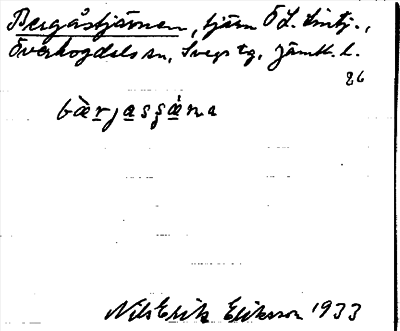 Bergåstjärnen, tjärn Ö L. Sintj.,
Överhogdals sn, Svegs tg, Jämtl. l.
86
bàrjasʂȧna
Nils Erik Eliksson 1933